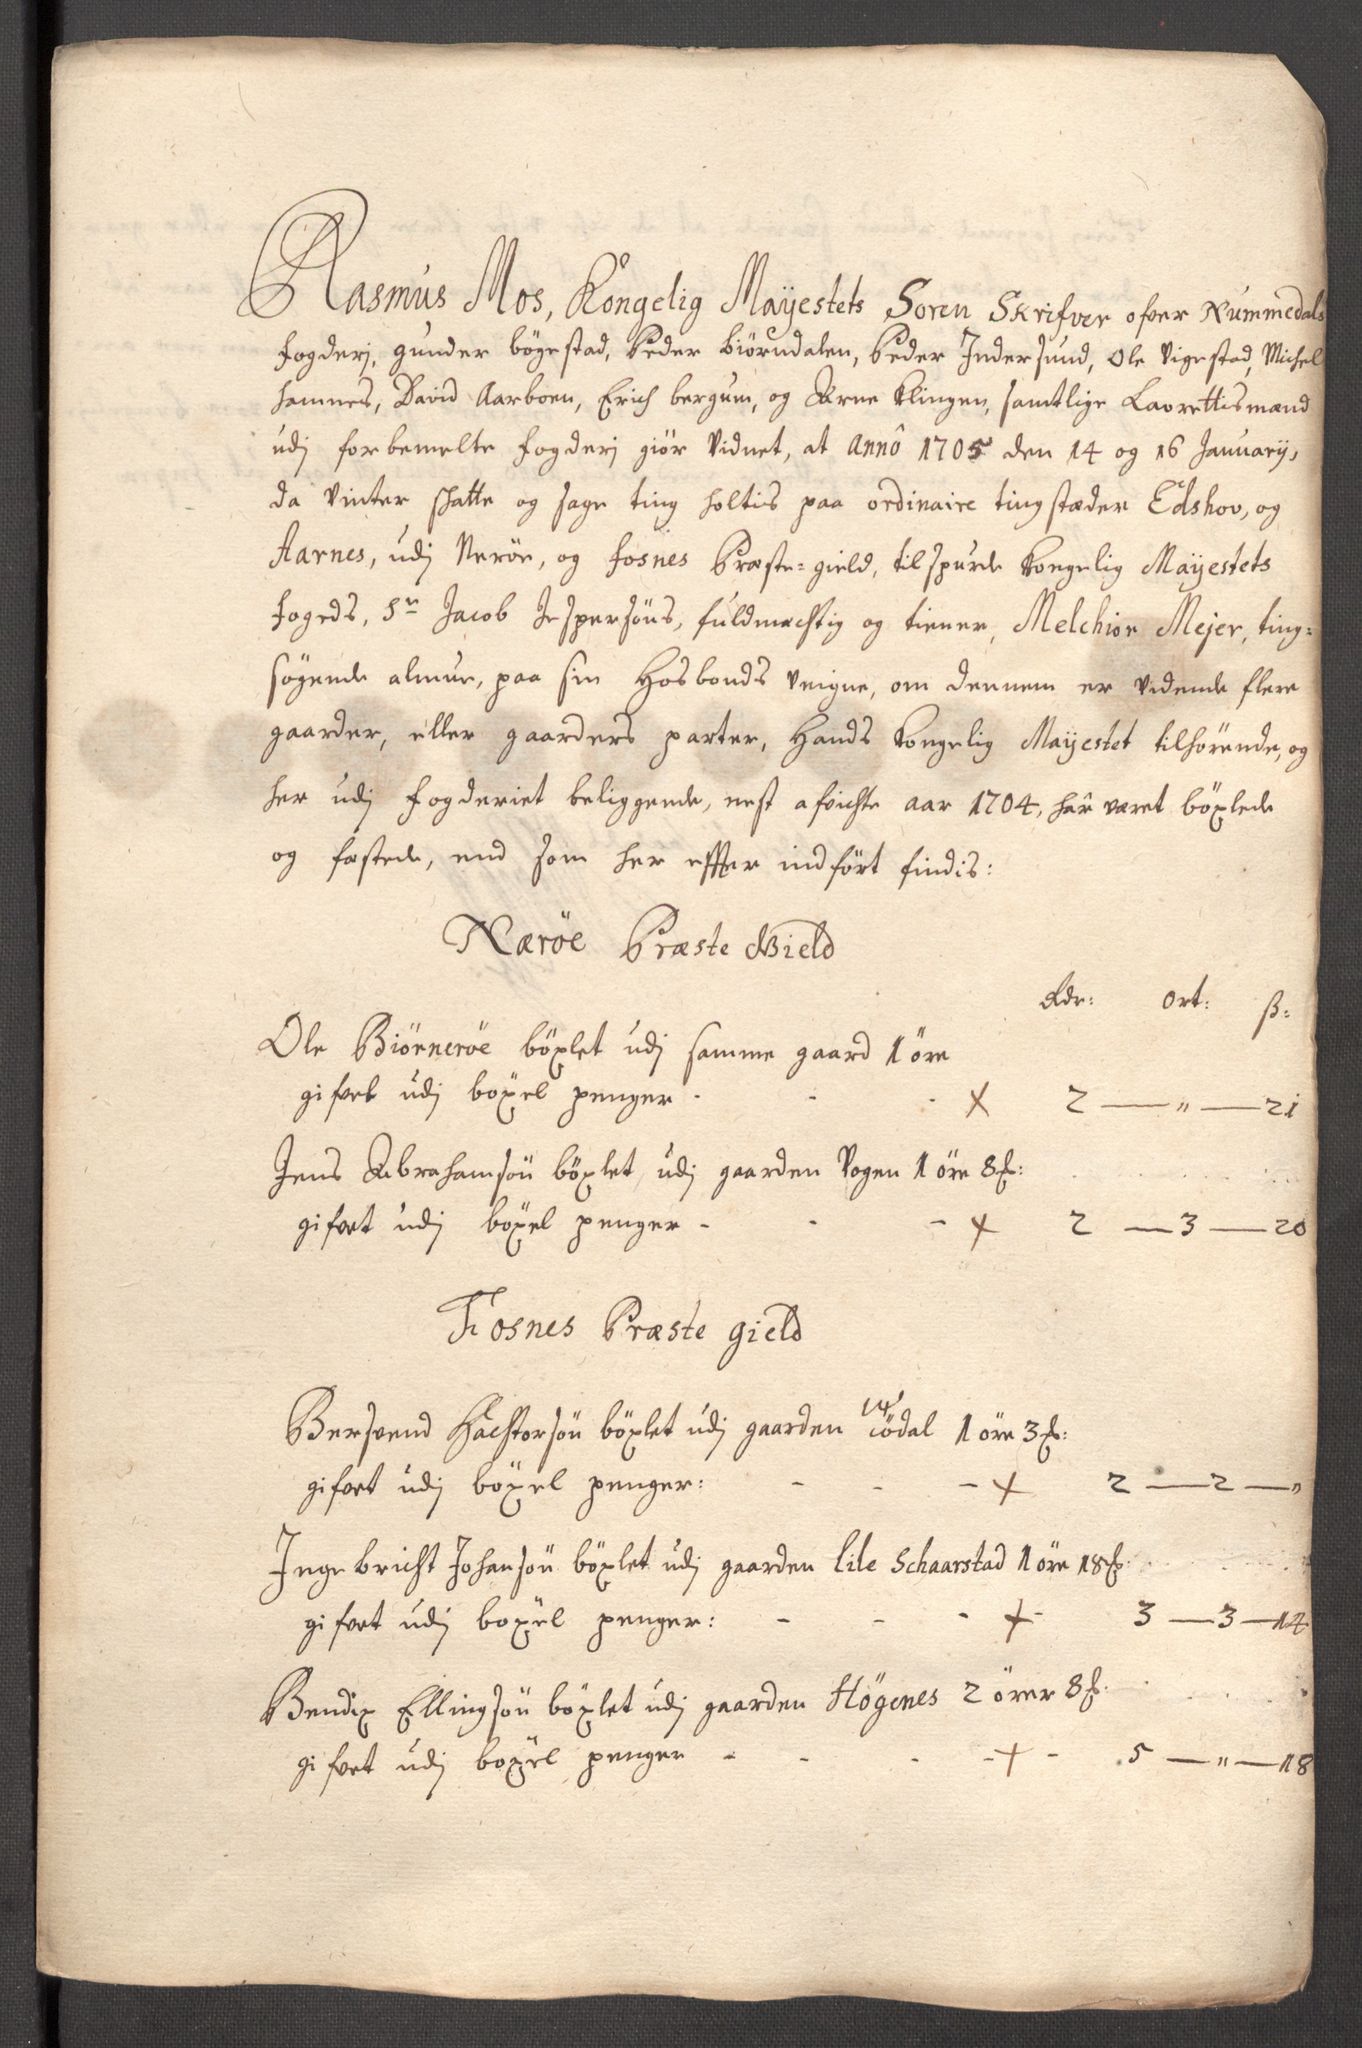 Rasmus Mos, Kongelig Maÿestets Soren Skrifver ofver Nummedals
fogderj, gunder bögestad, Peder Biörndalen, Peder Indersund, Ole Vigestad, Michel
hamnes, David Aarboen, Erich bergum, og Arne Klingen, samtlige Laurettismænd
udj forbemelte fogderj giör Vidnet, at Annô 1705 den 14 og 16 Januarij,
da Vinter skatte og sage ting holtis paa ordinaire tingstæder Edshov, og
Aarnes, udj Neröe, og Fosnes Præste-gield, tilspurde Kongelig Maÿestets
fogeds, Sr Jacob Jespersöns, fuldmechtig og tiener, Melchior Mejer, ting-
sögende almue, paa sin Hosbonds Veigne, om dennem er vidende flere
gaarder, eller gaarders parter, Hands Kongelig Maÿestet tilhörende, og
her udj fogderiet beliggende, nest afvichte aar 1704, har været böxlede
og fæstede, end som her effter indfört findis:
Næröe Præste Gield
Rdr: ort: ß:
Ole Biörneröe böxlet udj samme gaard 1 öre
gifvet udj böxel penger - - - X 2 — " — 21
Jens Abrahamsön böxlet udj gaarden Vogen 1 öre 8 ß:
gifvet udj böxel penger - - - X 2 — 3 — 20
Fosnes Præste gield
Bersvend Hachtorsön böxlet udj gaarden ödal 1 öre 3 ß:
gifvet udj böxel penger: - - - X 2 — 2 — "
Ingebricht Johansön böxlet udj gaarden lile Schaarstad 1 öre 18 ß:
gifvet udj boxel penger: - - - X - 3 — 3 — 14
Bendix Ellingsön böxlet udj gaarden Högenes 2 örer 8 ß:
gifvet udj boxel penger - - - - X - 5 — " — 18